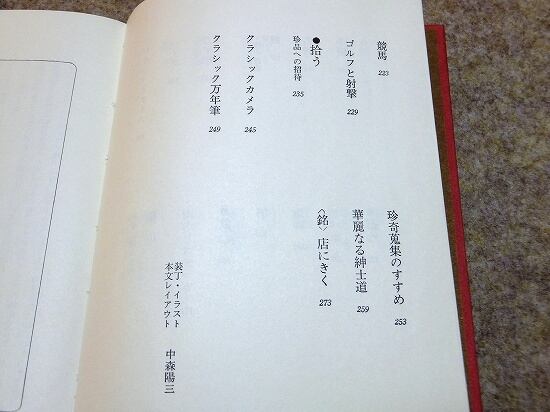 競馬 223
ゴルフと射撃 229
●拾う
珍品への招待 235
クラシックカメラ 245
クラシック万年筆 249
珍奇蒐集のすすめ 253
華麗なる紳士道 259
〈銘〉店にきく 273
装丁・イラスト
本文レイアウト
中森陽三